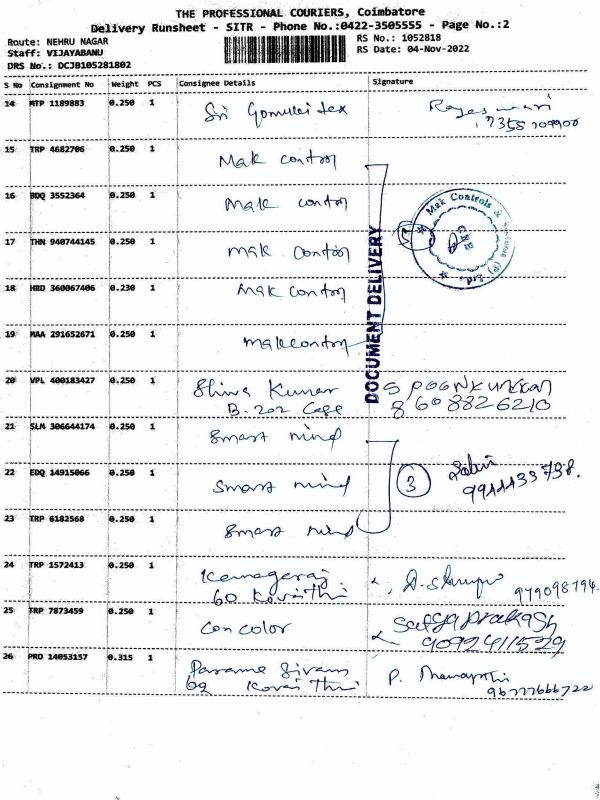 THE PROFESSIONAL COURIERS, Coimbatore
Delivery Runsheet - SITR - Phone No.:0422-3505555 - Page No.:2
Route: NEHRU NAGAR
RS No.: 1052818
Staff: VIJAYABANU
RS Date: 04-Nov-2022
DRS No.: DCJB105281802
S No Consignment No Weight PCS Consignee Details Signature
14 MTP 1189883 0.250 1 Sri
15 TRP 4682706 0.250 1 Mak Control
16 BDQ 3552364 0.250 1 Mak Control
17 THN 940744145 0.250 1 Mak Control
18 HBD 360067406 0.230 1 Mak Control
19 MAA 291652671 0.250 1 Mak Control
DOCUMENT DELIVERY
Mak Controls &
(P) Ltd.,
CBE
20 VPL 400183427 0.250 1 Shiva Kumar
B.202
8608826210
21 SLM 306644174 0.250 1 Smart mind
22 EDQ 14915066 0.250 1 Smart mind
3
23 TRP 6182568 0.250 1 Smart mind
24 TRP 1572413 0.250 1 Kamageraj
60 Kovaithi
979098794
25 TRP 7873459 0.250 1 Con color Satya prakash
9092411529
26 PRO 14053157 0.315 1 Parame Sivam P.
69 Kovai Thi